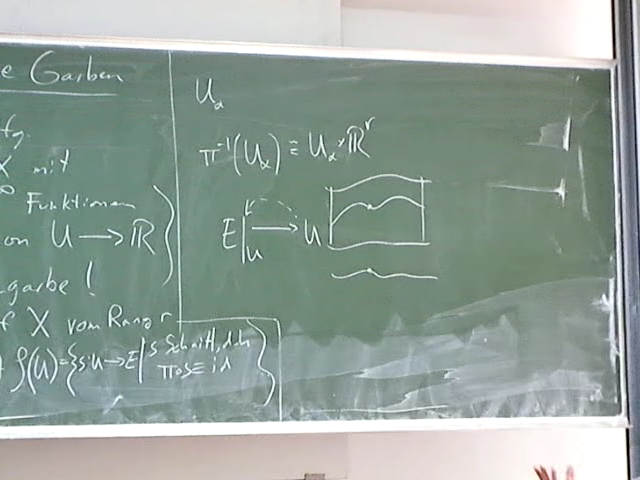 e Garben
fg.
X mit
∞ Funktionen
on U → ℝ
garbe!
f X vom Rang r
𝒮(U) = {s: U → E | s Schnitt, d.h. π∘s = id}
U_α
π⁻¹(U_α) ≅ U_α × ℝ^r
E|_U → U